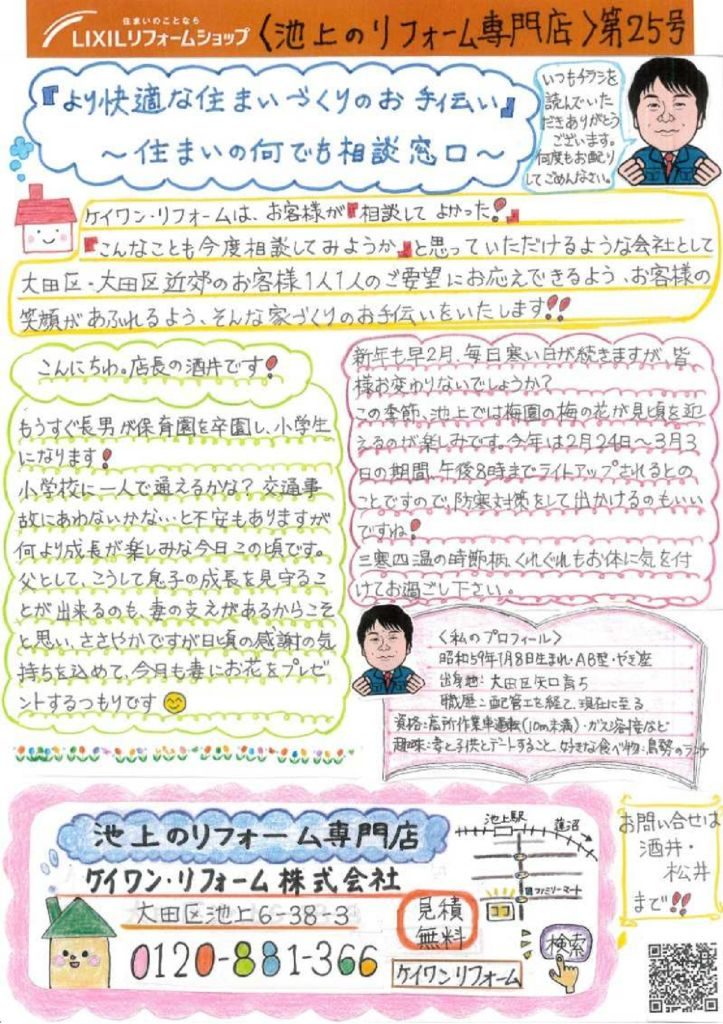 住まいのことなら
LIXILリフォームショップ
〈池上のリフォーム専門店〉第25号
『より快適な住まいづくりのお手伝い』
～住まいの何でも相談窓口～
いつもチラシを
読んでいた
だきありがとう
ございます。
何度もお配り
してごめんなさい。
ケイワン・リフォームは、お客様が『相談してよかった!』
『こんなことも今度相談してみようか』と思っていただけるような会社として
大田区・大田区近郊のお客様1人1人のご要望にお応えできるよう、お客様の
笑顔があふれるよう、そんな家づくりのお手伝いをいたします!!
こんにちわ。店長の酒井です!
もうすぐ長男が保育園を卒園し、小学生
になります!
小学校に一人で通えるかな?交通事
故にあわないかな…と不安もありますが
何より成長が楽しみな今日この頃です。
父として、こうして息子の成長を見守るこ
とが出来るのも、妻の支えがあるからこそ
と思い、ささやかですが日頃の感謝の気
持ちを込めて、今月も妻にお花をプレゼ
ントするつもりです😊
新年も早2月、毎日寒い日が続きますが、皆
様お変わりないでしょうか?
この季節、池上では梅園の梅の花が見頃を迎
えるのが楽しみです。今年は2月24日～3月3
日の期間、午後8時までライトアップされるとの
ことですので、防寒対策をして出かけるのもいい
ですね!
三寒四温の時節柄、くれぐれもお体に気を付
けてお過ごし下さい。
〈私のプロフィール〉
昭和59年1月8日生まれ・AB型・やぎ座
出身地:大田区矢口育ち
職歴:配管工を経て、現在に至る
資格:高所作業車運転(10m未満)・ガス溶接など
趣味:妻と子供とデートすること、好きな食べ物:鳥勢のランチ
池上のリフォーム専門店
ケイワン・リフォーム株式会社
大田区池上6-38-3
0120-881-366
見積
無料
ケイワンリフォーム
検索
池上駅
蓮沼
ファミリーマート
ココ
お問い合せは
酒井・
松井
まで!!